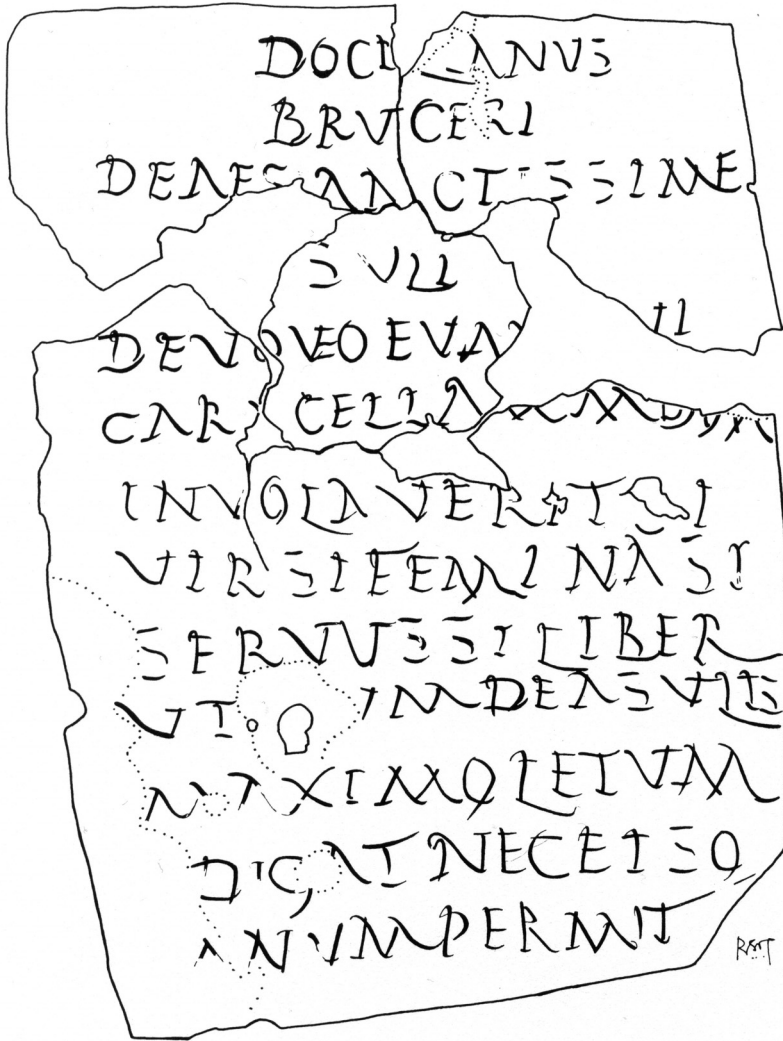 DOCILIANVS
BRVCERI
DEAE SANCTISSIME
SVLI
DEVOVEO EVM
CARACELLAM MEAM
INVOLAVERIT SI
VIR SI FEMINA SI
SERVVS SI LIBER
DEA SVLIS
MAXIMO LETVM
DIGAT NEC EI SO
MNVM PERMIT